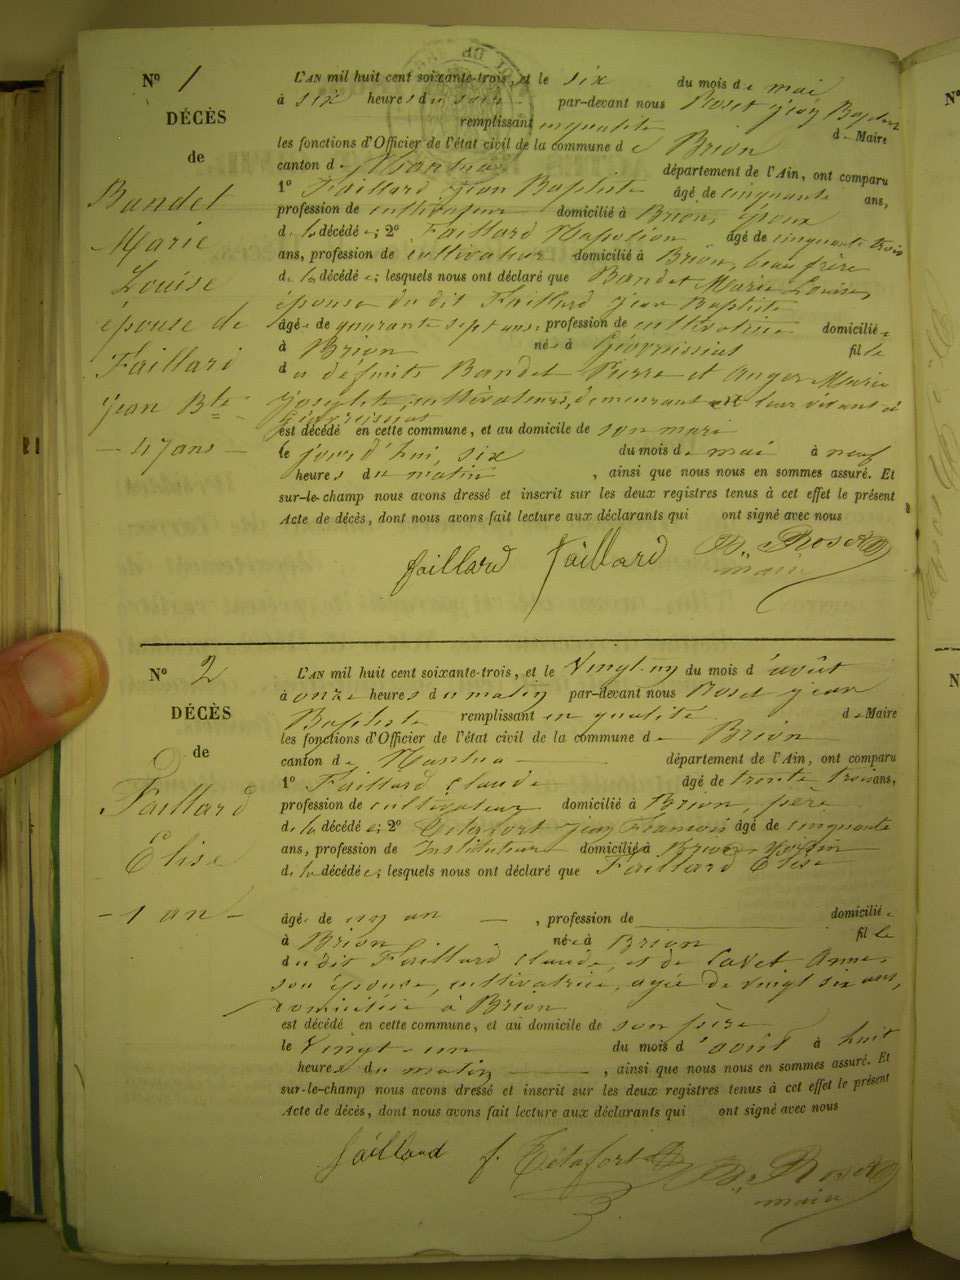 N° 1
DÉCÈS
de
Bandet
Marie
Louise
épouse de
Faillard
Jean Bte
- 47 ans -
L'AN mil huit cent soixante-trois, et le six du mois de mai
à six heures du soir par-devant nous Roset Jean Baptiste
remplissant en qualité de Maire
les fonctions d'Officier de l'état civil de la commune de Brion
canton de Nantua département de l'Ain, ont comparu
1° Faillard Jean Baptiste âgé de cinquante ans,
profession de cultivateur domicilié à Brion, époux
de la décédée; 2° Faillard Napoléon âgé de cinquante trois
ans, profession de cultivateur domicilié à Brion, beau frère
de la décédée; lesquels nous ont déclaré que Bandet Marie Louise,
épouse du dit Faillard Jean Baptiste
âgée de quarante sept ans, profession de cultivatrice domiciliée
à Brion née à Géovreissiat fille
des défunts Bandet Pierre et Anger Marie
Josephte, cultivateurs, demeurant de leur vivant à
Géovreissiat
est décédée en cette commune, et au domicile de son mari
le jourd'hui, six du mois de mai à neuf
heures du matin, ainsi que nous nous en sommes assuré. Et
sur-le-champ nous avons dressé et inscrit sur les deux registres tenus à cet effet le présent
Acte de décès, dont nous avons fait lecture aux déclarants qui ont signé avec nous
faillard faillard Bte Roset
maire
N° 2
DÉCÈS
de
Faillard
Elise
- 1 an -
L'AN mil huit cent soixante-trois, et le vingt-un du mois d'août
à onze heures du matin par-devant nous Roset Jean
Baptiste remplissant en qualité de Maire
les fonctions d'Officier de l'état civil de la commune de Brion
canton de Nantua département de l'Ain, ont comparu
1° Faillard Claude âgé de trente trois ans,
profession de cultivateur domicilié à Brion, père
de la décédée; 2° Tétafort Jean François âgé de cinquante
ans, profession de Instituteur domicilié à Brion, voisin
de la décédée; lesquels nous ont déclaré que Faillard Elise
âgée de un an, profession de domiciliée
à Brion née à Brion fille
du dit Faillard Claude, et de Cavet Anne,
son épouse, cultivatrice, agée de vingt six ans,
domiciliée à Brion
est décédé en cette commune, et au domicile de son père
le vingt-un du mois d'août à huit
heures du matin, ainsi que nous nous en sommes assuré. Et
sur-le-champ nous avons dressé et inscrit sur les deux registres tenus à cet effet le présent
Acte de décès, dont nous avons fait lecture aux déclarants qui ont signé avec nous
faillard f. Tétafort Bte Roset
maire